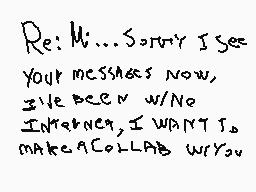 Re: Mi...Sorry I see
your messages now,
I've been w/no
Internet, I want to
make a collab w/you